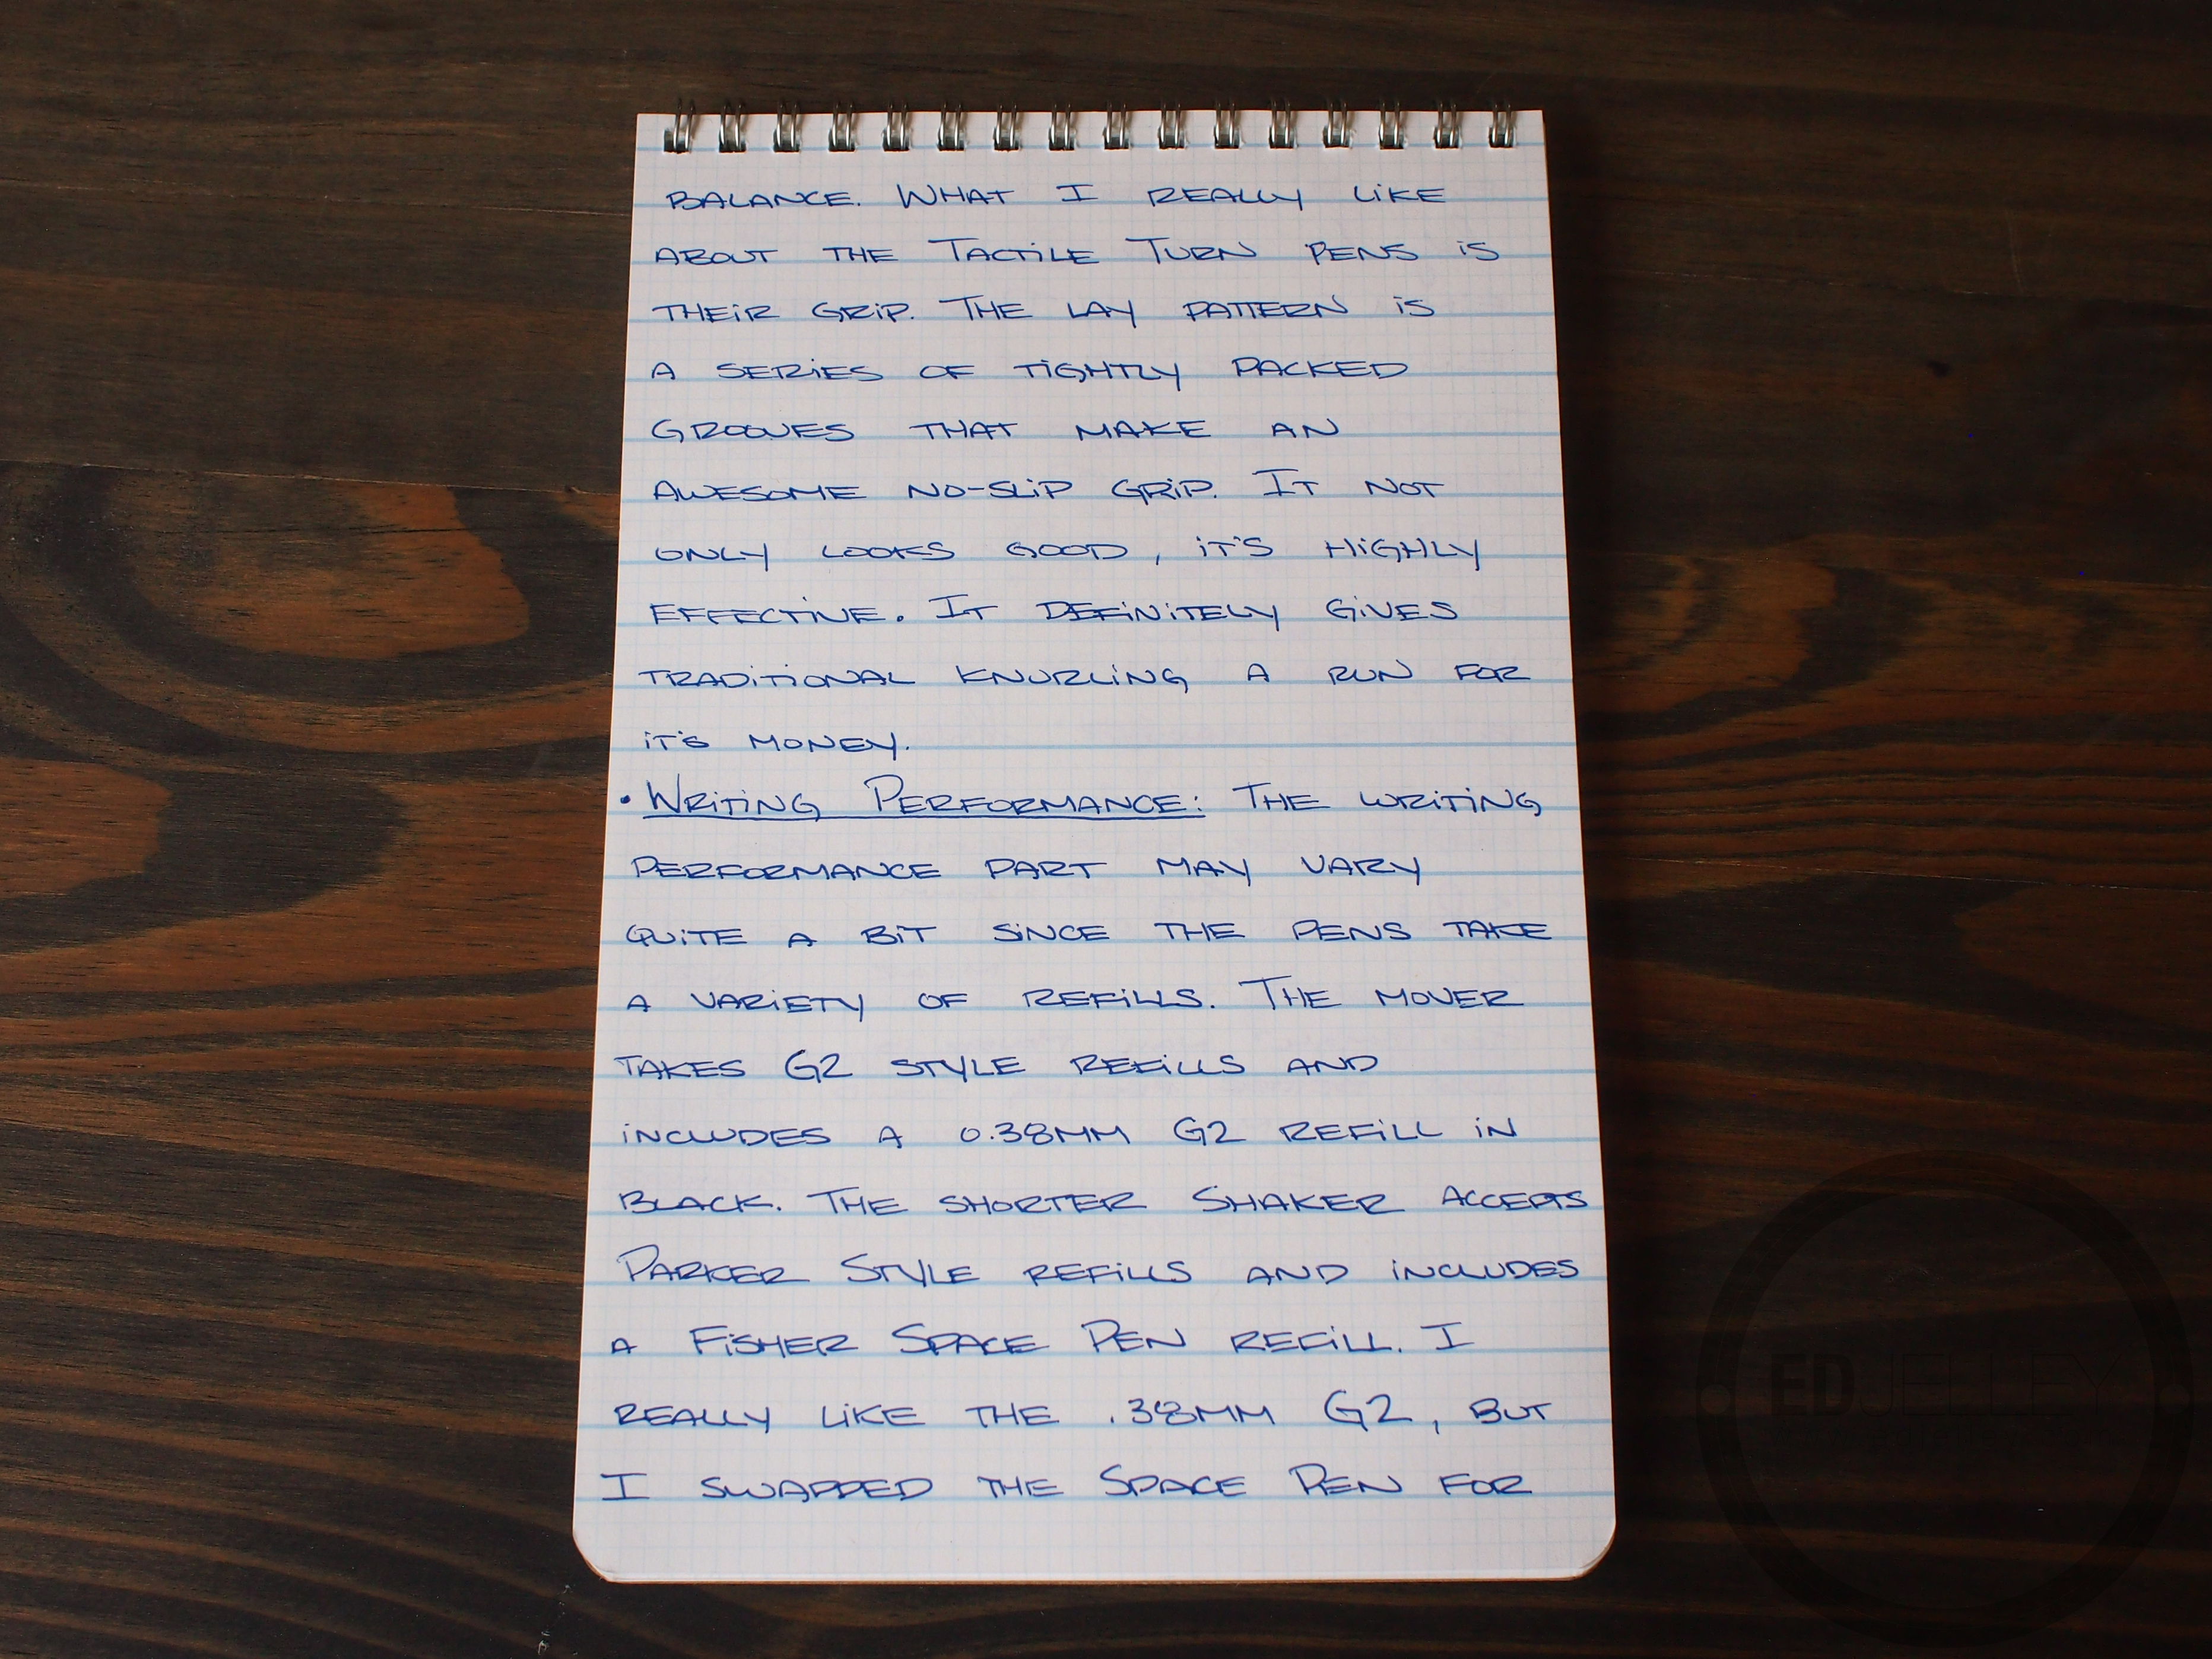 BALANCE. WHAT I REALLY LIKE
ABOUT THE TACTILE TURN PENS IS
THEIR GRIP. THE LAY PATTERN IS
A SERIES OF TIGHTLY PACKED
GROOVES THAT MAKE AN
AWESOME NO-SLIP GRIP. IT NOT
ONLY LOOKS GOOD, IT'S HIGHLY
EFFECTIVE. IT DEFINITELY GIVES
TRADITIONAL KNURLING A RUN FOR
IT'S MONEY.
• WRITING PERFORMANCE: THE WRITING
PERFORMANCE PART MAY VARY
QUITE A BIT SINCE THE PENS TAKE
A VARIETY OF REFILLS. THE MOVER
TAKES G2 STYLE REFILLS AND
INCLUDES A 0.38MM G2 REFILL IN
BLACK. THE SHORTER SHAKER ACCEPTS
PARKER STYLE REFILLS AND INCLUDES
A FISHER SPACE PEN REFILL. I
REALLY LIKE THE .38MM G2, BUT
I SWAPPED THE SPACE PEN FOR
EDJELLEY